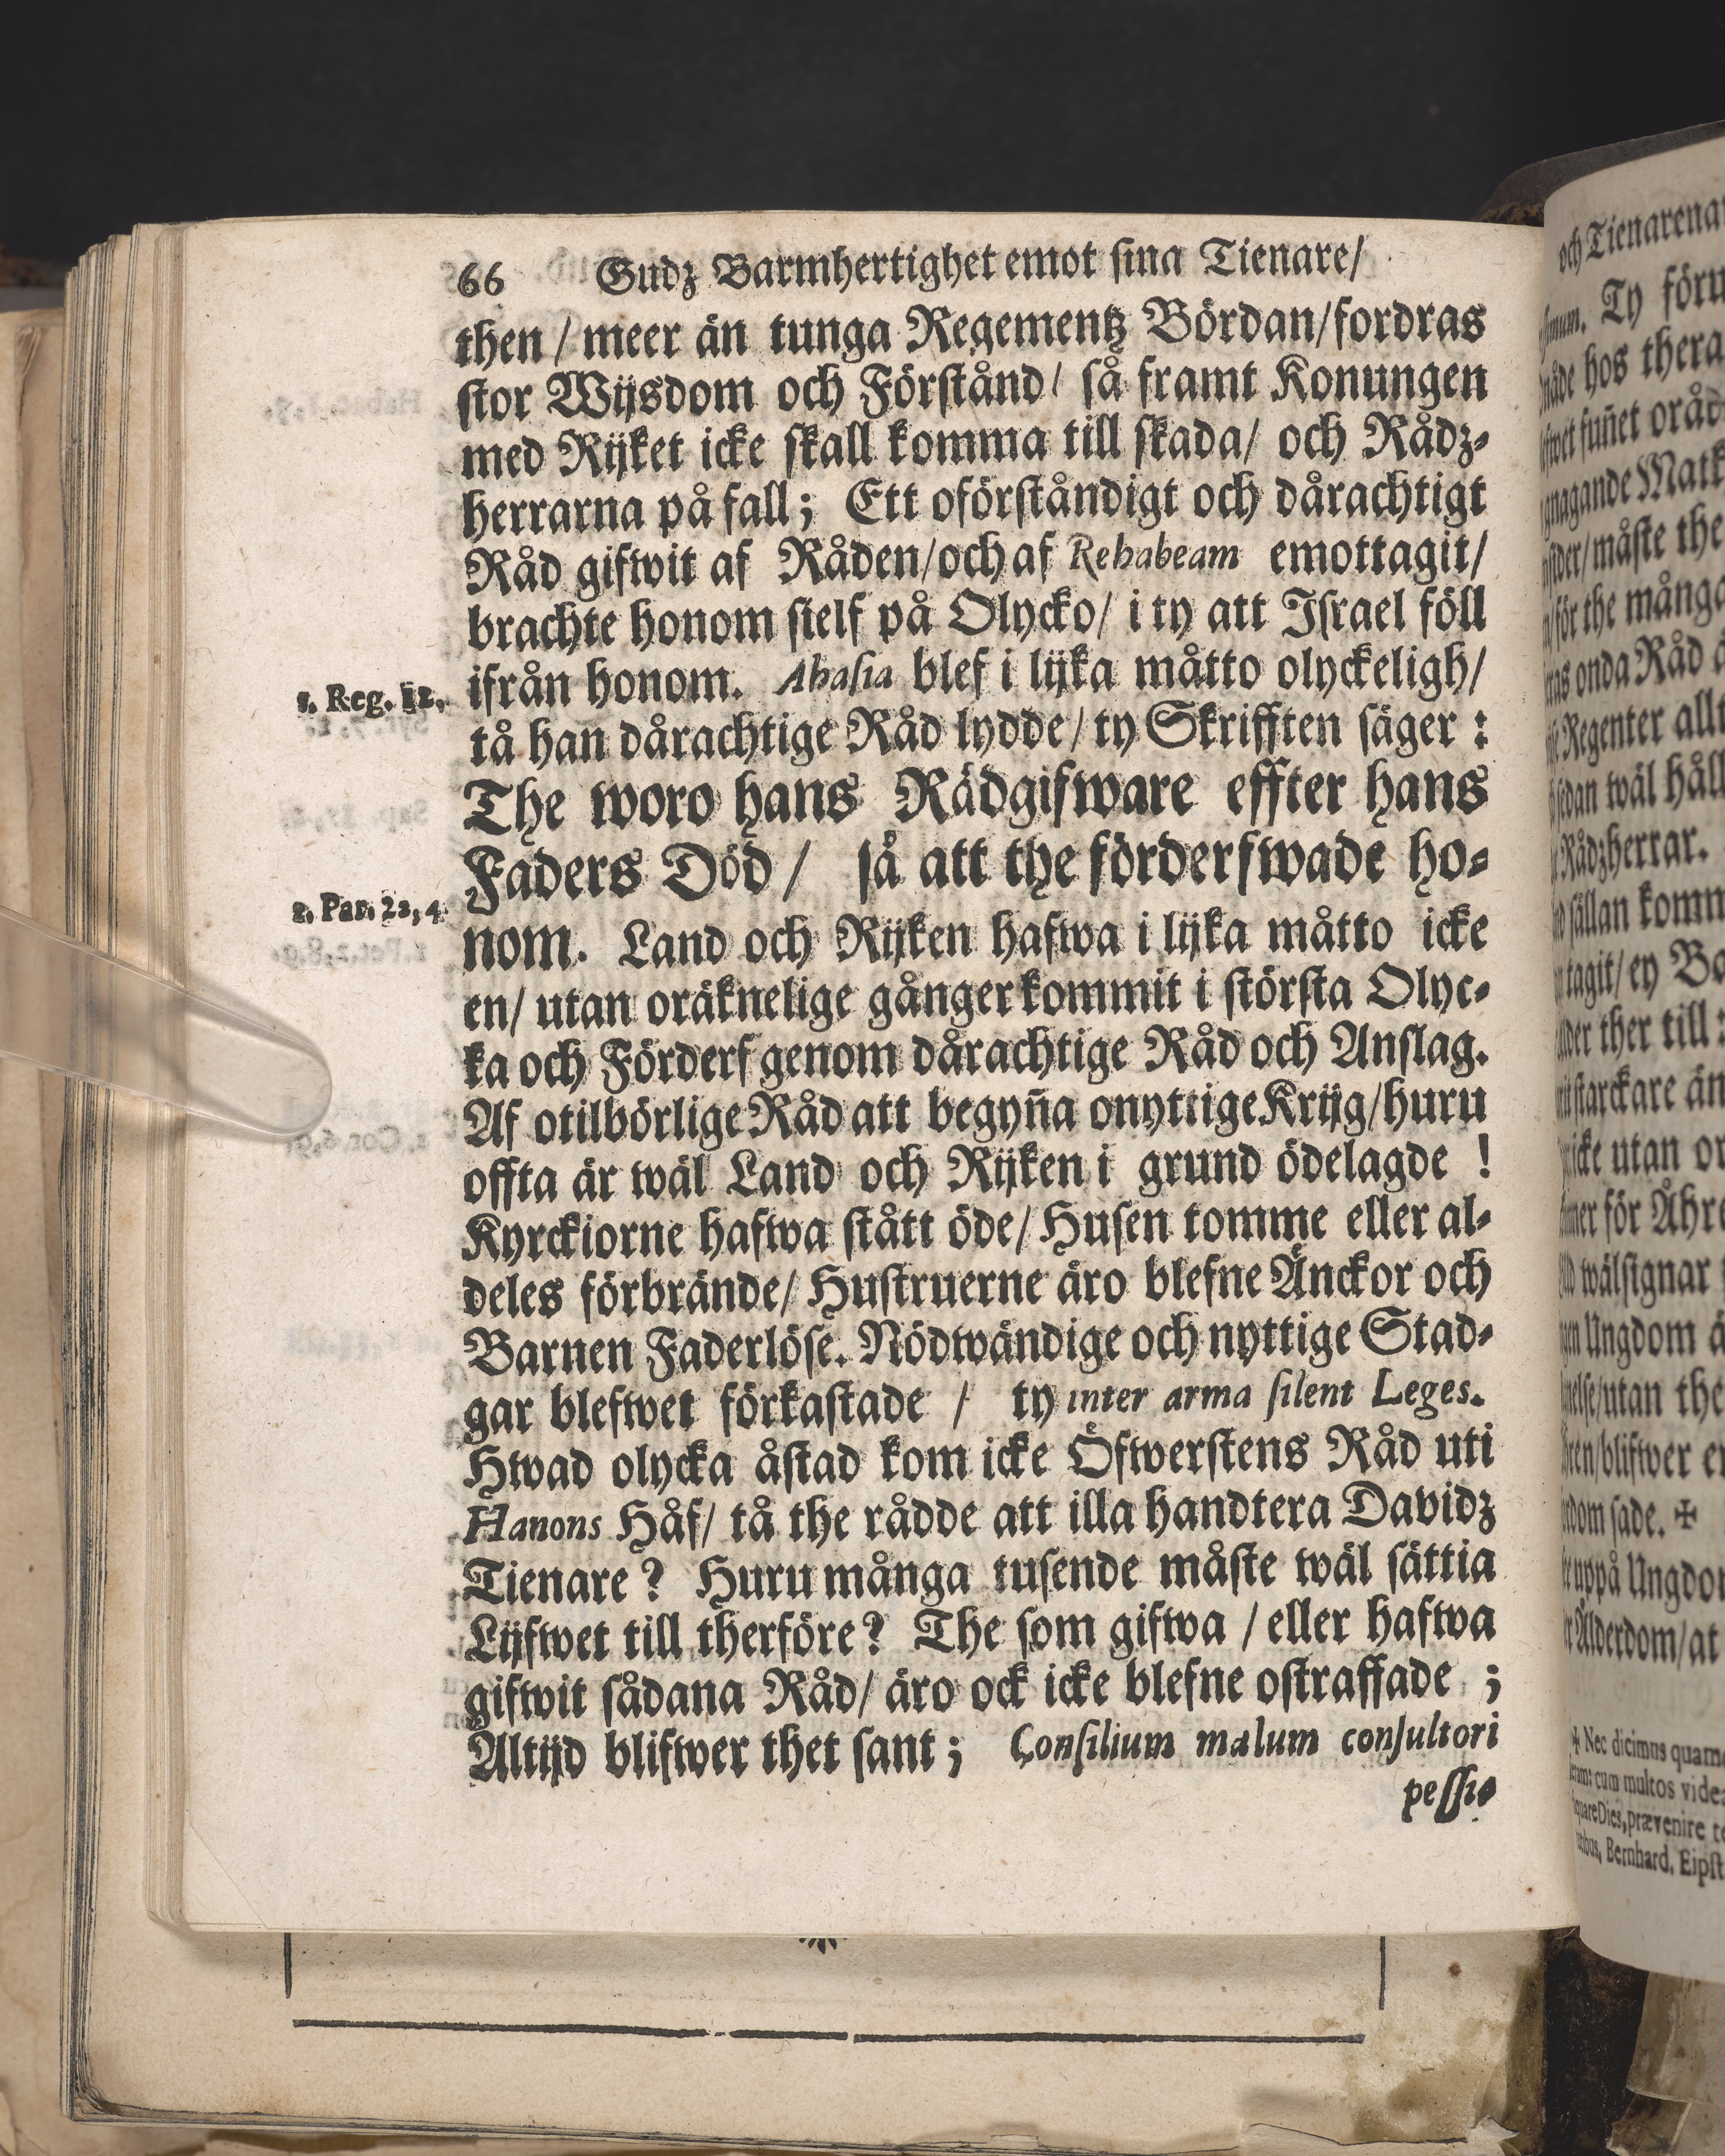 66 Gudz Barmhertighet emot sina Tienare/
then / meer än tunga Regementz Bördan/fordras
stor Wijsdom och Förstånd/ så framt Konungen
med Rijket icke skall komma till skada/ och Rådz-
herrarna på fall; Ett oförståndigt och dårachtigt
Råd gifwit af Råden/och af Rehabeam emottagit/
brachte honom sielf på Olycko/ i ty att Israel föll
ifrån honom. Ahasia blef i lijka måtto olyckeligh/
1. Reg. 12.
tå han dårachtige Råd lydde/ ty Skrifften säger :
The woro hans Rådgifware effter hans
Faders Död / så att the förderfwade ho-
2. Par. 22, 4.
nom. Land och Rijken hafwa i lijka måtto icke
en/ utan oräknelige gånger kommit i största Olyc-
ka och Förderf genom dårachtige Råd och Anslag.
Af otilbörlige Råd att begyn̄a onyttige Krijg/huru
offta är wäl Land och Rijken i grund ödelagde !
Kyrckiorne hafwa stått öde/ Husen tomme eller al-
deles förbrände/ Hustruerne äro blefne Änckor och
Barnen Faderlöse. Nödwändige och nyttige Stad-
gar blefwet förkastade / ty inter arma silent Leges.
Hwad olycka åstad kom icke Öfwerstens Råd uti
Hanons Håf/ tå the rådde att illa handtera Davidz
Tienare? Huru många tusende måste wäl sättia
Lijfwet till therföre? The som gifwa / eller hafwa
gifwit sådana Råd/ äro ock icke blefne ostraffade ;
Altijd blifwer thet sant ; Consilium malum consultori
pessi-
och Tienarena
Ty föru
hos thera
fun̄et oråd
gnagande Matk
måste the
för the många
onda Råd
Regenter allt
sedan wäl håll
Rådzherrar.
sällan komm
tagit/ ey Ba
ther till:
starckare än
icke utan or
för Åhre
wälsignar
Ungdom ä
utan the
blifwer er
sade. ✠
uppå Ungdom
Ålderdom/at
✠ Nec dicimus quam
cum multos vide
Dies, prævenire te
Bernhard, Eipst